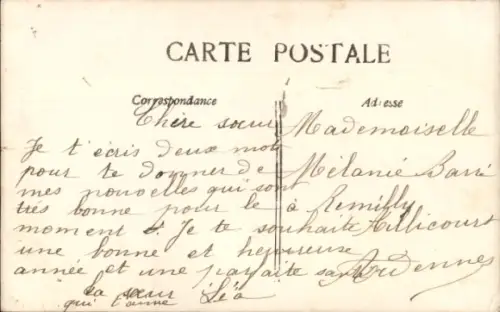 CARTE POSTALE
Correspondance
Adresse
Chère sœur
Je t'écris deux mots
pour te donner de
mes nouvelles qui sont
très bonne pour le
moment Je te souhaite
une bonne et heureuse
année et une parfaite santé
ta sœur Léa
qui t'aime
Mademoiselle
Mélanie Barré
à Remilly
Aillicourt
Ardennes